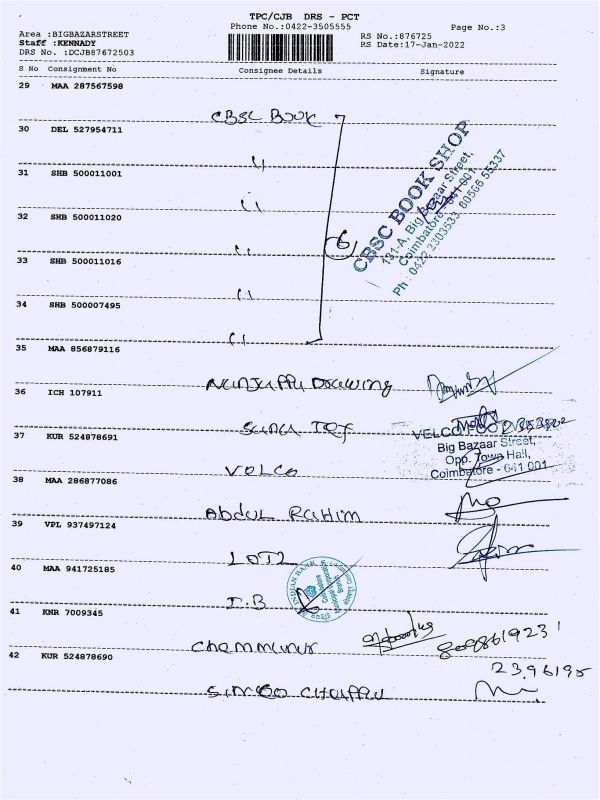 TPC/CJB DRS - PCT
Phone No.:0422-3505555 Page No.:3
Area :BIGBAZARSTREET
Staff :KENNADY RS No.:876725
DRS No. :DCJB87672503 RS Date:17-Jan-2022
S No Consignment No Consignee Details Signature
29 MAA 287567598
CBSC BOOK
30 DEL 527954711
"
31 SHB 500011001
"
32 SHB 500011020
"
33 SHB 500011016
"
34 SHB 500007495
"
6
CBSC BOOK SHOP
131-A, Big Bazaar Street,
Coimbatore - 641 001
Ph : 0422 2303533
35 MAA 856879116
Nunjuppu Drawing
36 ICH 107911
Sunu Tex
37 KUR 524878691
VOLCO
Big Bazaar Street,
Opp. Town Hall,
Coimbatore - 641 001
38 MAA 286877086
Abdul Rahim
39 VPL 937497124
40 MAA 941725185
I.B
INDIAN BANK
41 KNR 7009345
Chemmunur
42 KUR 524878690